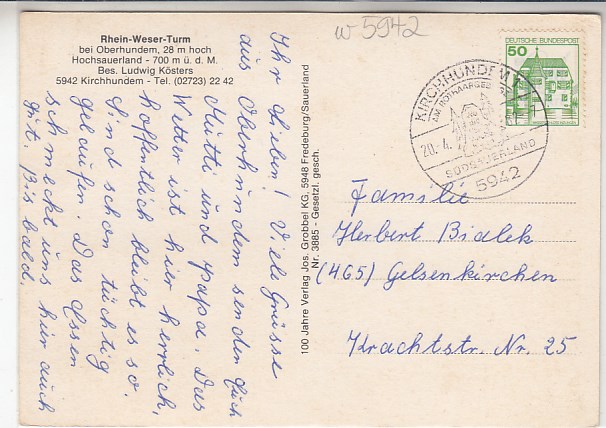 w 5942
Rhein-Weser-Turm
bei Oberhundem, 28 m hoch
Hochsauerland - 700 m ü. d. M.
Bes. Ludwig Kösters
5942 Kirchhundem - Tel. (02723) 22 42
Ihr Lieben! Viele Grüsse
aus Oberhundem senden Euch
Mutti und Papa. Das
Wetter ist hier herrlich,
hoffentlich bleibt es so.
Sind schon tüchtig
gelaufen. Das Essen
schmeckt uns hier auch
gut. Bis bald.
100 Jahre Verlag Jos. Grobbel KG, 5948 Fredeburg/Sauerland
Nr. 3885 - Gesetzl. gesch.
DEUTSCHE BUNDESPOST
50
KIRCHHUNDEM 1
AM ROTHAARGEB
20.4.
SÜDSAUERLAND
5942
Familie
Herbert Bialek
(465) Gelsenkirchen
Krachtstr. Nr. 25